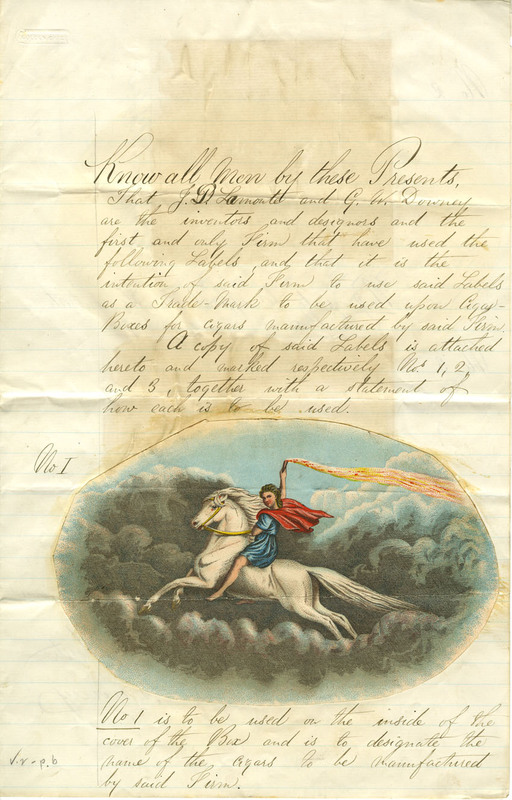 Know all Men by these Presents,
That J. D. Lamonte and G. W. Downey
are the inventors and designors and the
first, and only Firm that have used the
following Labels, and that it is the
intention of said Firm to use said Labels
as a Trade-Mark to be used upon Cigar-
Boxes for cigars manufactured by said Firm.
A copy of said Labels is attached
hereto and marked respectively Nos 1, 2,
and 3, together with a statement of
how each is to be used.
No. I
No 1 is to be used on the inside of the
cover of the Box and is to designate the
name of the cigars to be manufactured
by said Firm.